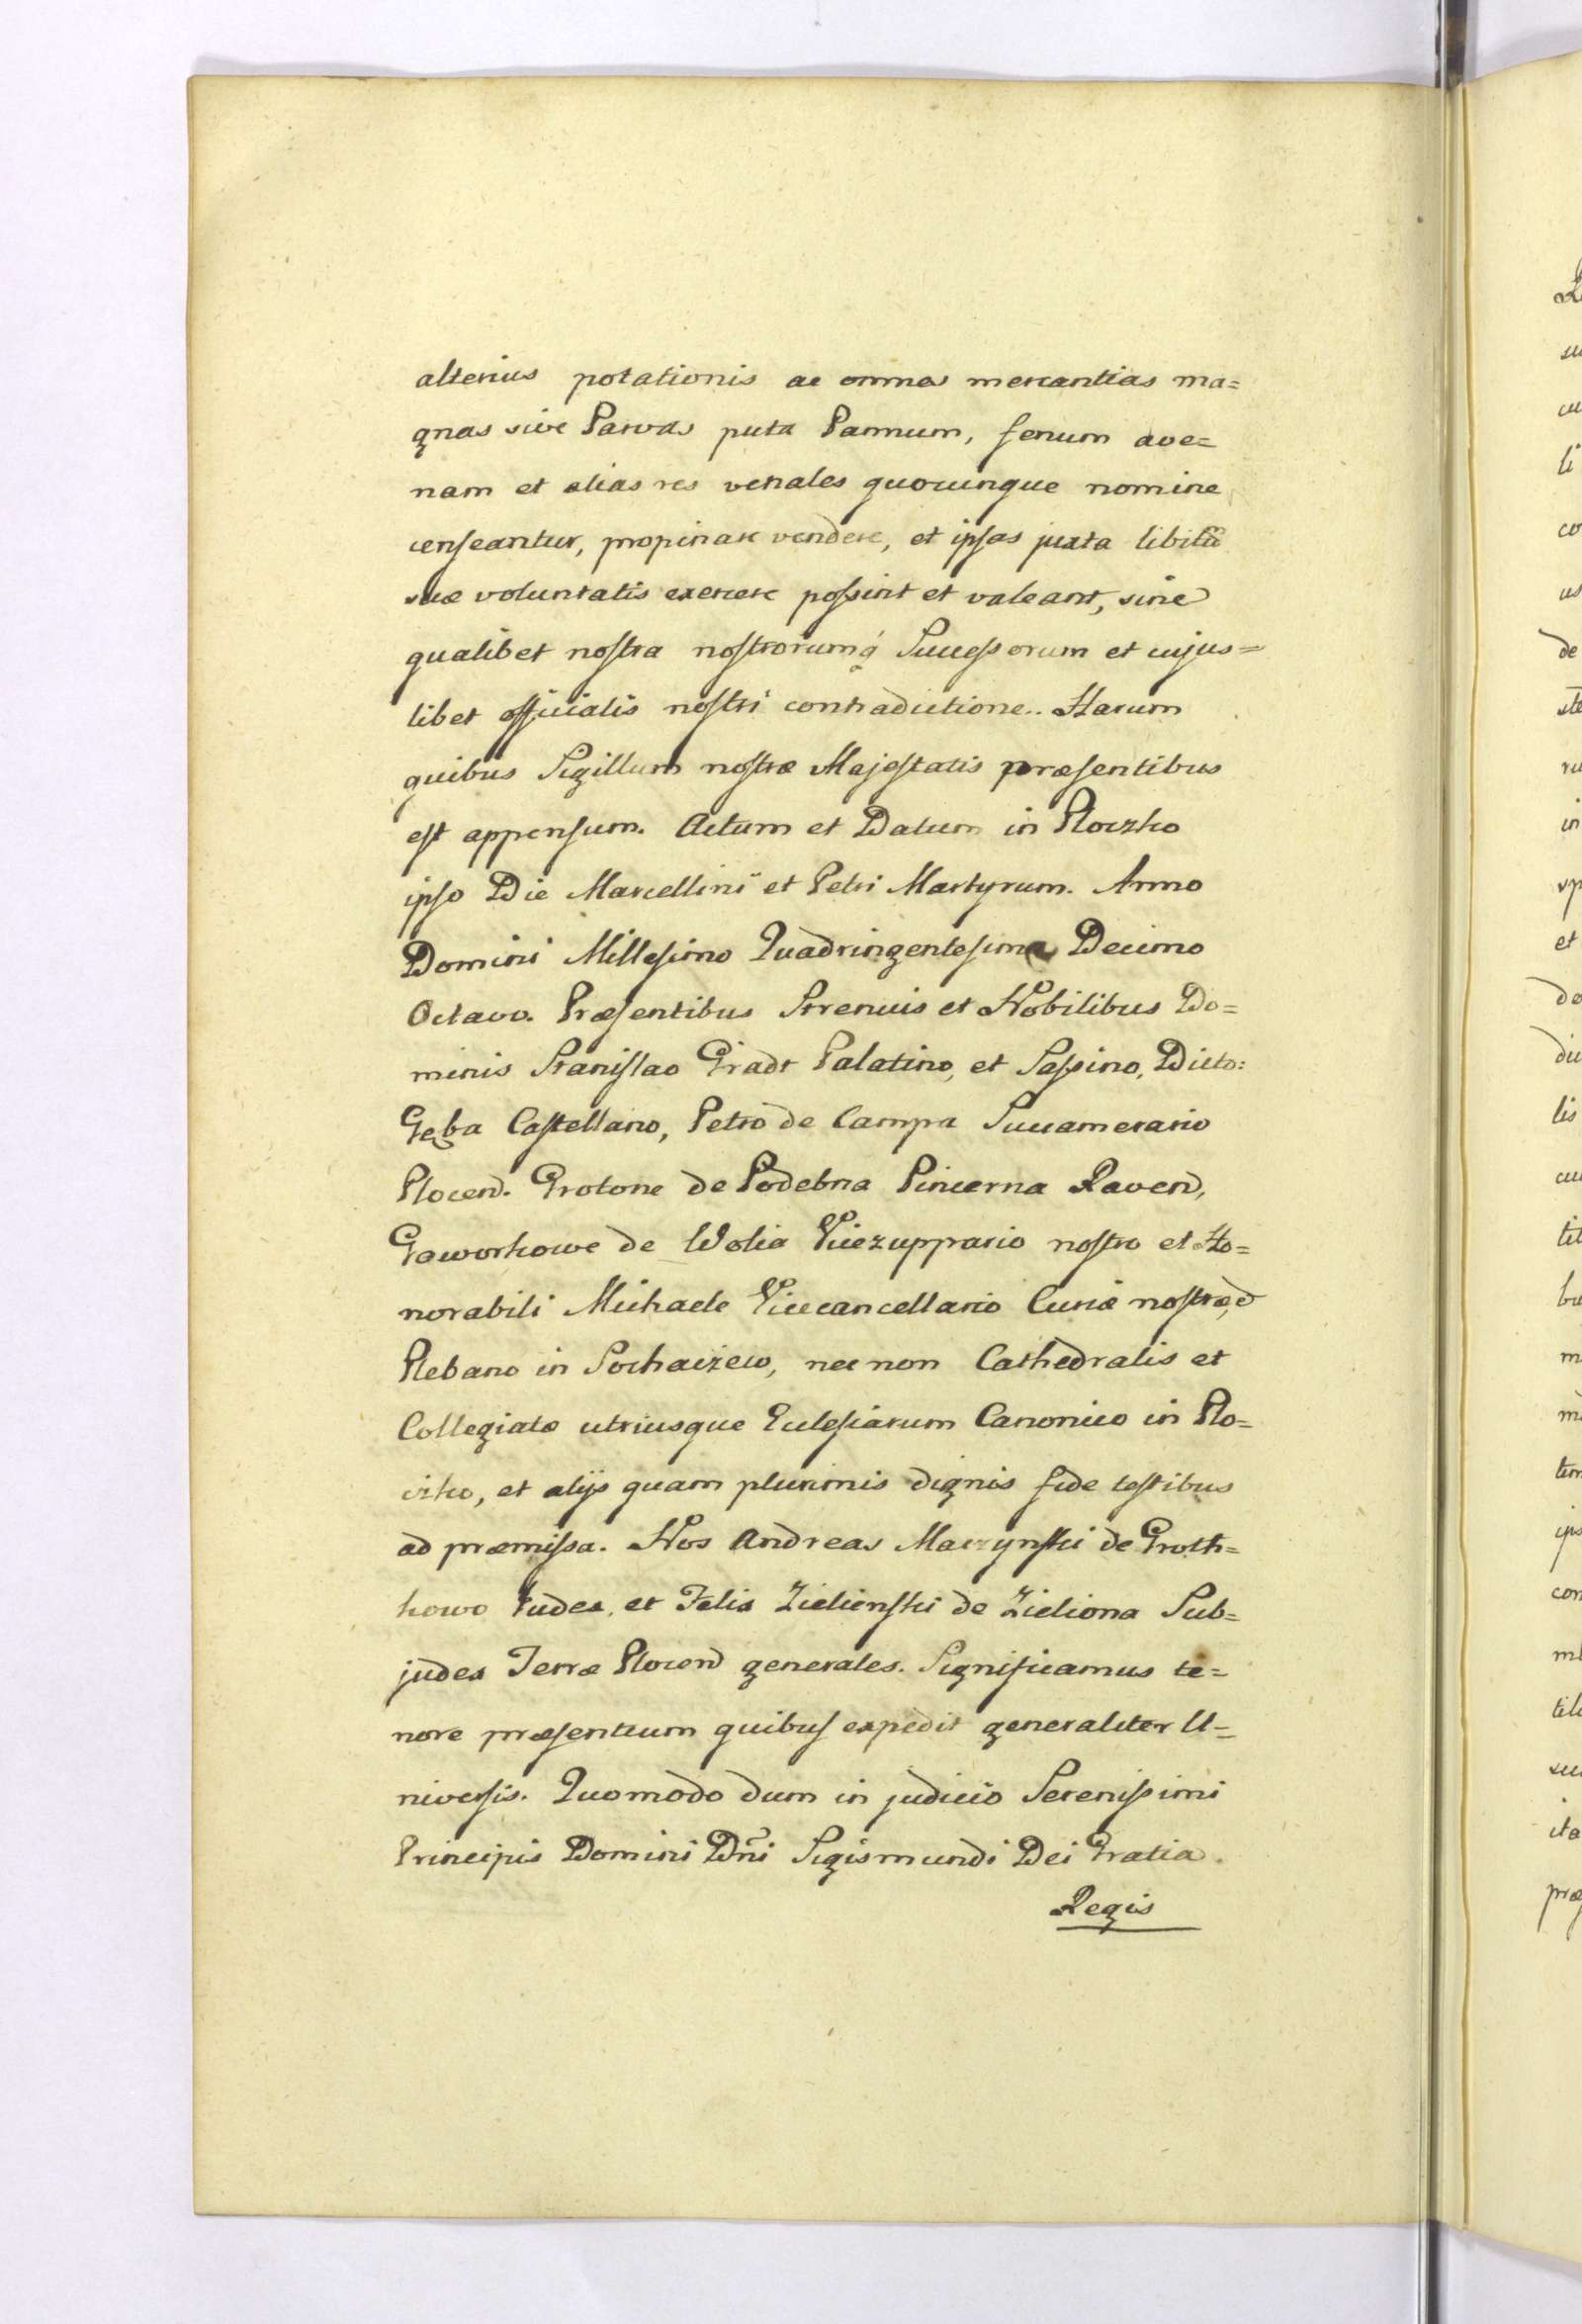 alterius potationis ac omnes mercantias ma=
gnas sive Parvas puta Pannum, fenum ave=
nam et alias res venales quocunque nomine
censeantur, propinare vendere, et ipsas juxta libitũ
suæ voluntatis exercere possint et valeant, sine
qualibet nostra nostrorumq́ Successorum et cujus=
libet officialis nostri contradictione. Harum
quibus Sigillum nostræ Majestatis præsentibus
est appensum. Actum et Datum in Ploczko
ipso Die Marcellini et Petri Martyrum. Anno
Domini Millesimo Quadringentesimo Decimo
Octavo. Præsentibus Strenuis et Nobilibus Do=
minis Stanislao Gradt Palatino, et Sassino, Dicto:
Gęba Castellano, Petro de Campa Succamerario
Plocen. Grotone de Podebna Pincerna Raven,
Goworkowe de Wolia Vicezuppario nostro et Ho=
norabili Michaele Vicecancellario Curiæ nostræ,
Plebano in Sochaczew, nec non Cathedralis et
Collegiatæ utriusque Ecclesiarum Canonico in Plo=
czko, et alijs quam plurimis dignis fide testibus
ad præmissa. Nos Andreas Maczynski de Groth=
kowo Judex, et Felix Zielienski de Zieliona Sub=
judex Terræ Plocen generales. Significamus te=
nore præsentium quibus expedit generaliter U=
niversis. Quomodo dum in judicio Serenissimi
Principis Domini Dñi Sigismundi Dei Gratia.
Regis